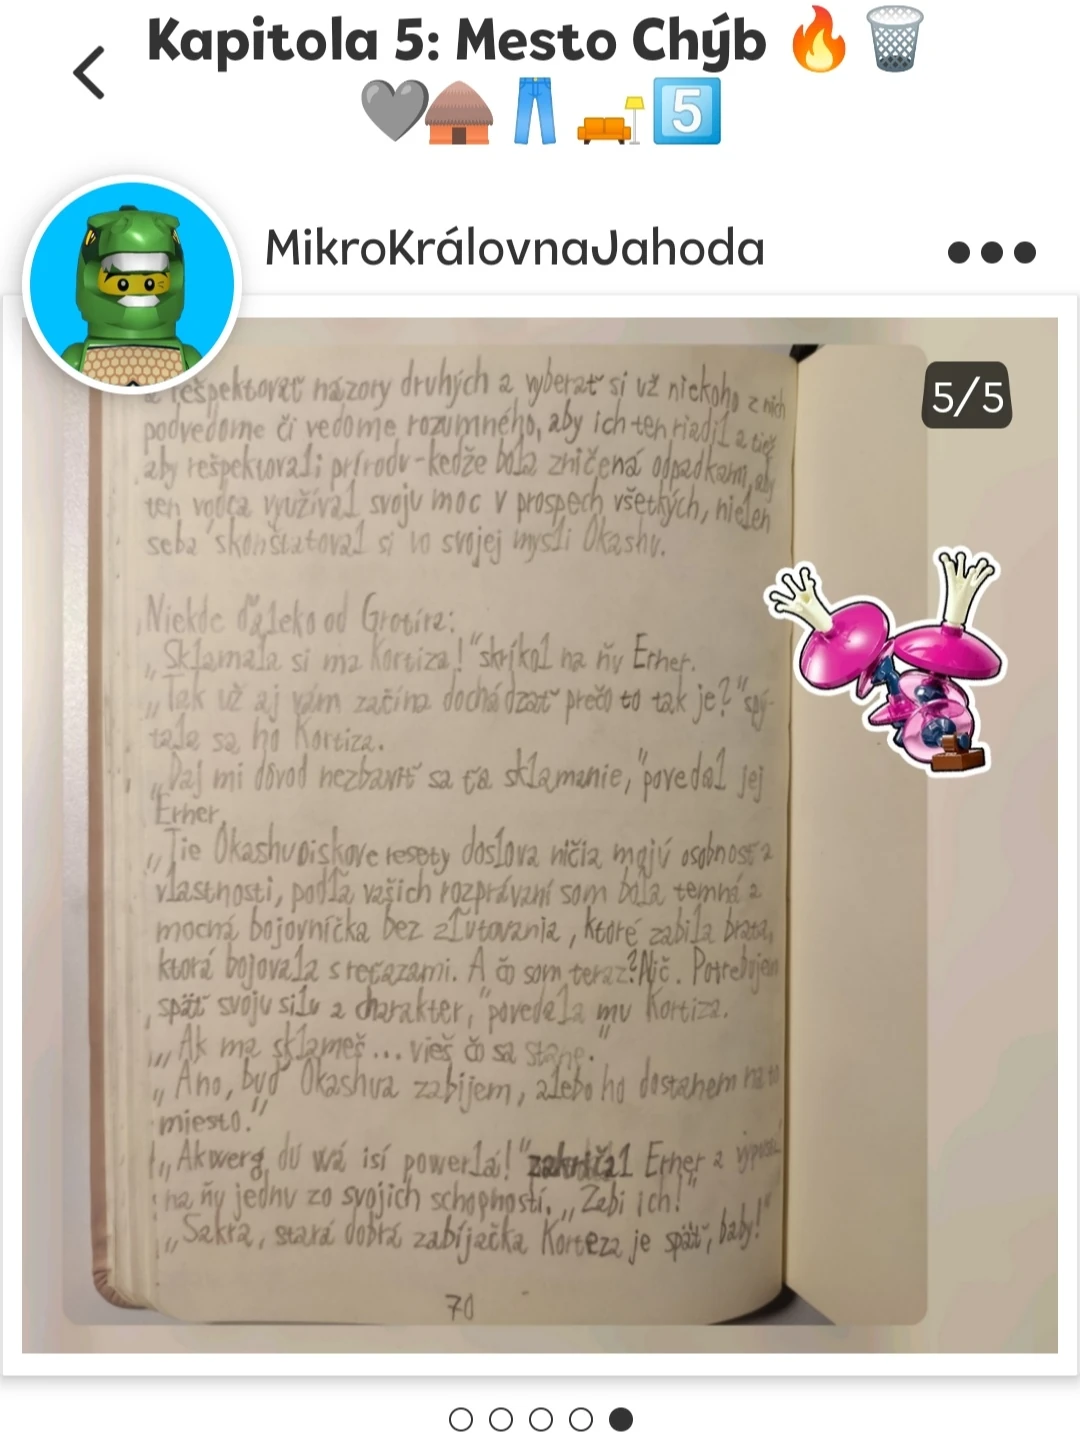 Kapitola 5: Mesto Chýb 🔥 🗑️
🩶🛖 👖 🛋️ 5️⃣
MikroKrálovnaJahoda
5/5
rešpektovať názory druhých a vyberať si už niekoho z nich
podvedome či vedome rozumného, aby ich ten riadil a tiež
aby rešpektovali prírodu - kedže bola zničená odpadkam, aby
ten vodca využíval svoju moc v prospech všetkých, nielen
seba skonštatoval si vo svojej mysli Okashu.
Niekde ďaleko od Grotira:
„Sklamala si ma Kortiza!" skríkol na ňu Erher.
„Tak už aj vám začína dochádzať prečo to tak je?" spý-
tala sa ho Kortiza.
„Daj mi dôvod nezbaviť sa ťa sklamanie," povedal jej
Erher.
„Tie Okashuoiskove resety doslova ničia moju osobnosť a
vlastnosti, podľa vašich rozprávaní som bola temná a
mocná bojovníčka bez zľutovania, ktoré zabila brata,
ktorá bojovala s reťazami. A čo som teraz? Nič. Potrebujem
späť svoju silu a charakter," povedala mu Kortiza.
„Ak ma sklameš... vieš čo sa stane."
„Ano, buď Okashua zabijem, alebo ho dostanem na to
miesto."
„Akwerg du wá isí powerlá!" zakričal Erher a
na ňu jednu zo svojich schopností. „Zabi ich!"
„Sakra, stará dobrá zabíjačka Korteza je späť, baby!"
70